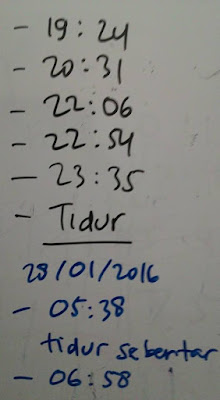 - 19:24
- 20:31
- 22:06
- 22:54
- 23:35
- Tidur
29/01/2016
- 05:38
tidur sebentar
- 06:58